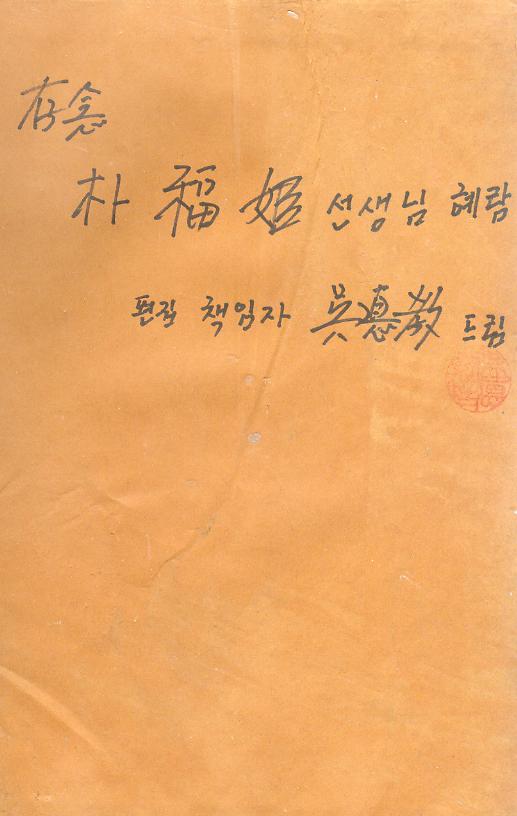 存念
朴福姬 선생님 혜람
편집 책임자 吳惪敎 드림